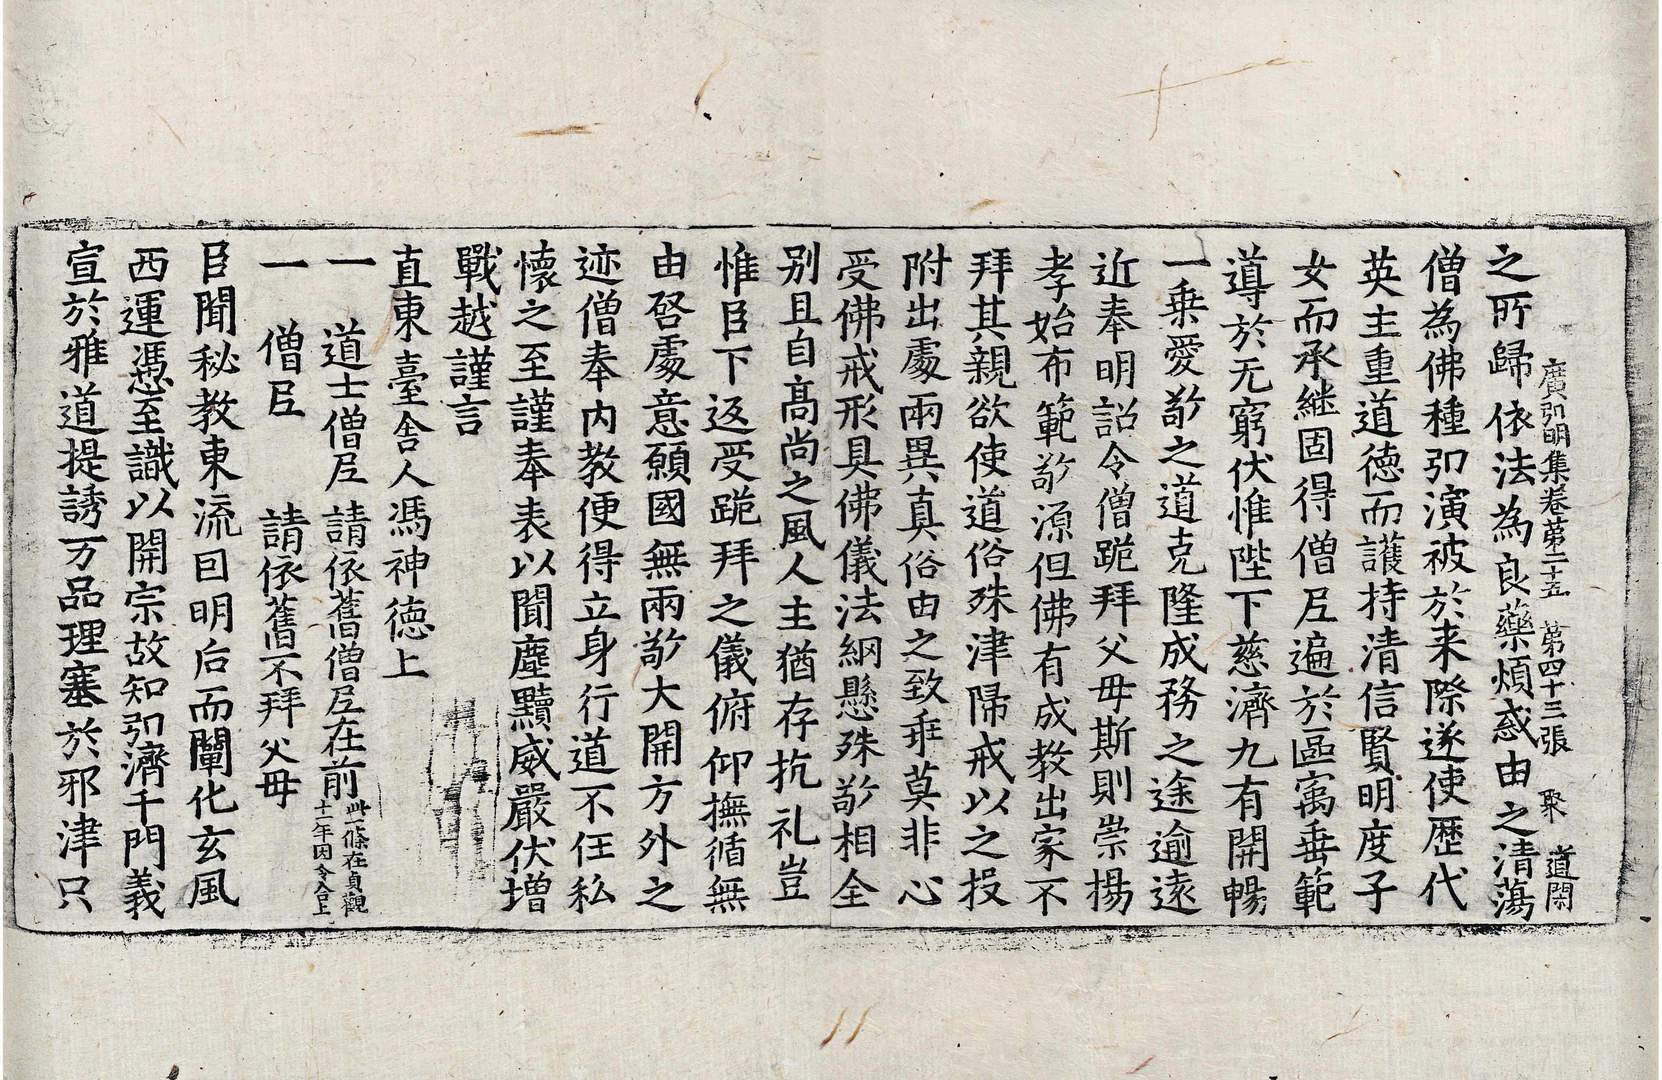 廣弘明集卷第二十五　第四十三張　聚　道閑
之所歸依法為良藥煩惑由之清蕩
僧為佛種弘演被於来際遂使歷代
英主重道德而護持清信賢明度子
女而承継固得僧尼遍於區㝢垂範
導於无窮伏惟陛下慈濟九有開暢
一乗愛敬之道克隆成務之途逾遠
近奉明詔令僧跪拜父母斯則崇揚
孝始布範敬源但佛有成教出家不
拜其親欲使道俗殊津歸戒以之投
附出處兩異真俗由之致乖莫非心
受佛戒形具佛儀法綱懸殊敬相全
别且自高尚之風人主猶存抗礼豈
惟臣下返受跪拜之儀俯仰撫循無
由啓處意願國無兩敬大開方外之
迹僧奉内教便得立身行道不任私
懷之至謹奉表以聞塵黷威嚴伏增
戰越謹言
直東臺舍人馮神德上
一　道士僧尼　請依舊僧尼在前此一條在貞觀十一年因令合上
一　僧尼　請依舊不拜父母
臣聞秘教東流因明后而闡化玄風
西運憑至識以開宗故知弘濟千門義
宣於雅道提誘万品理塞於邪津只